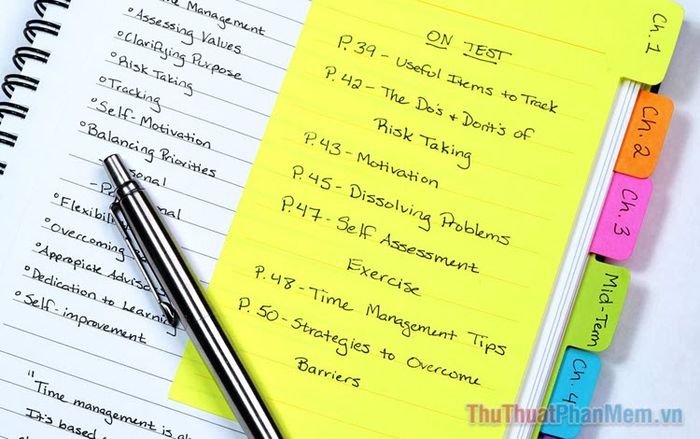 Time Management
°Assessing Values
°Clarifying Purpose
°Risk Taking
°Tracking
°Self-Motivation
°Balancing Priorities
°Flexibil
°Overcoming
°Appropiate Advisor
°Dedication to Learning
°Self-improvement
"Time management is
It's based
ON TEST
P. 39 - Useful Items to Track
P. 42 - The Do's & Dont's of
Risk Taking
P. 43 - Motivation
P. 45 - Dissolving Problems
P. 47 - Self Assessment
Exercise
P. 48 - Time Management Tips
P. 50 - Strategies to Overcome
Barriers
Ch. 1
Ch. 2
Ch. 3
Mid-Term
Ch. 4
ThuThuatPhanMem.vn